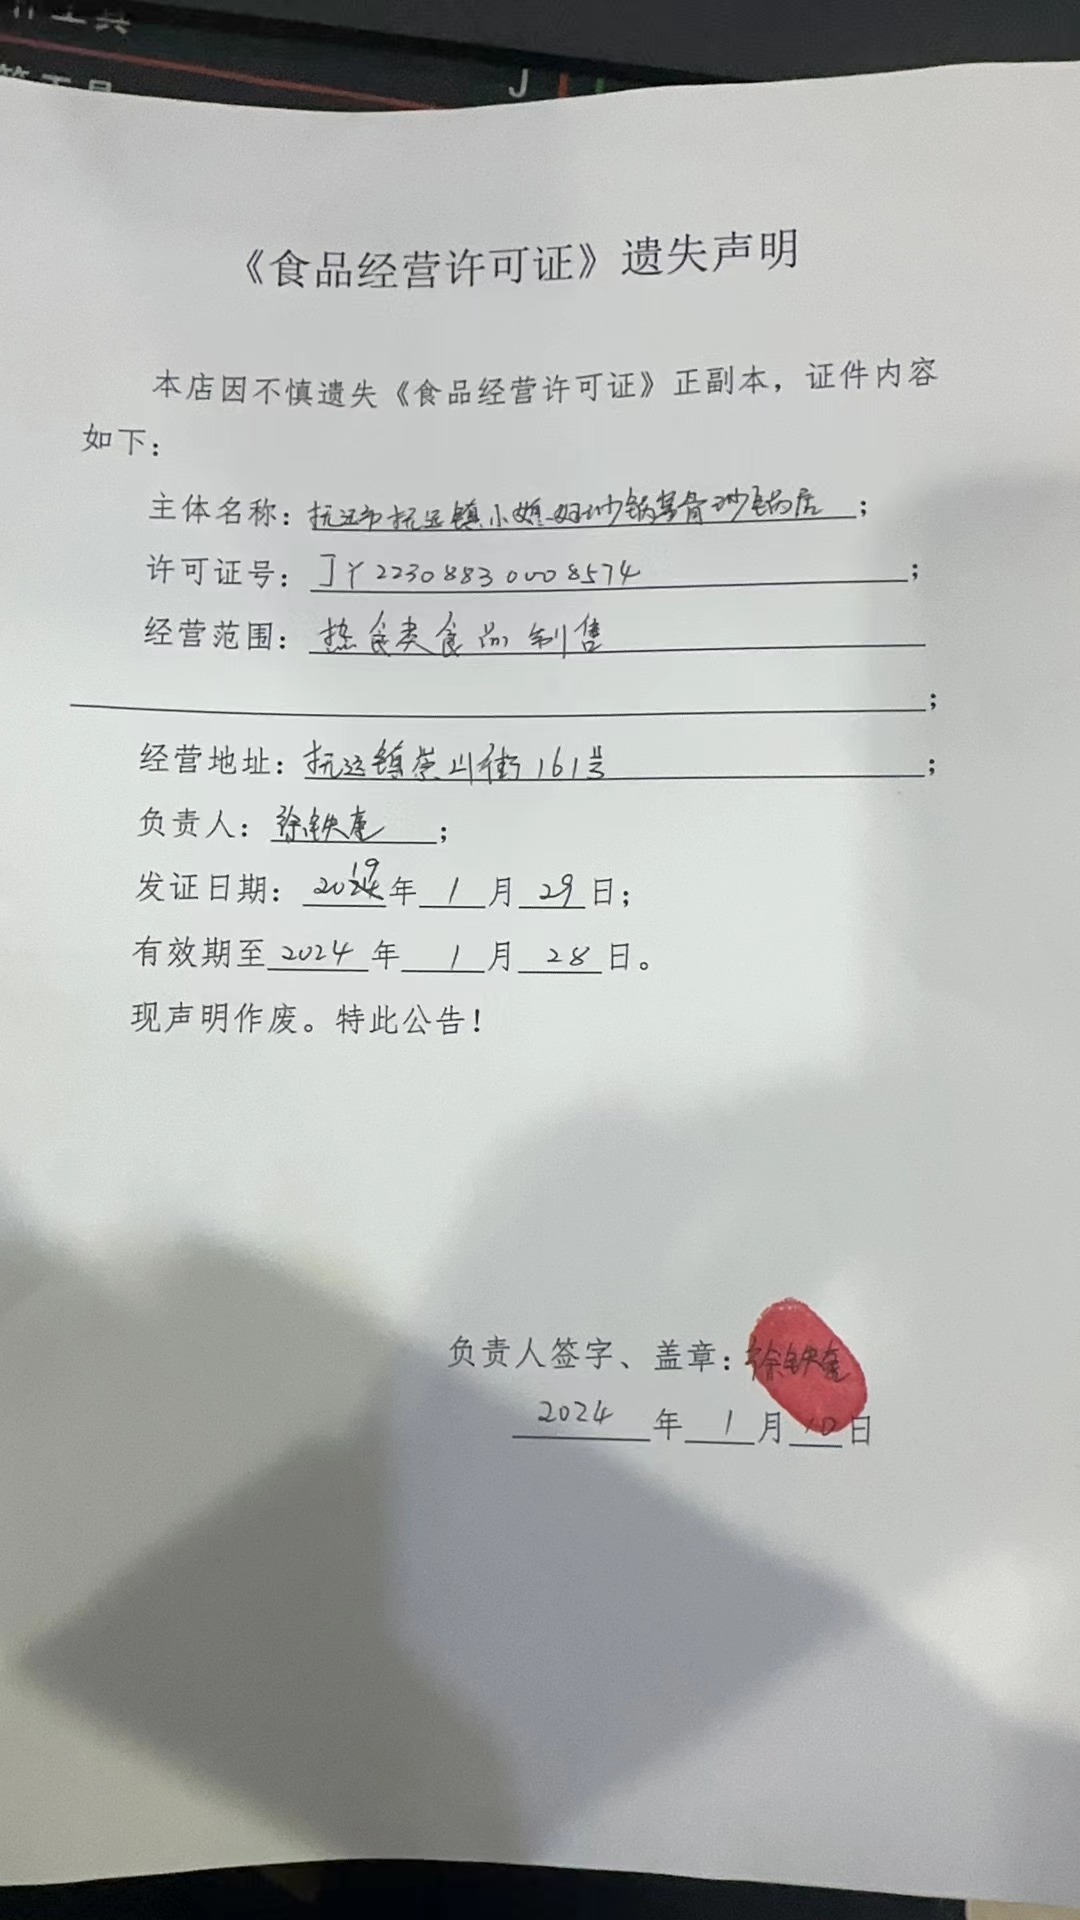 《食品经营许可证》遗失声明
本店因不慎遗失《食品经营许可证》正副本，证件内容
如下：
主体名称：抚远市抚远镇小媳妇砂锅骨砂锅居；
许可证号：JY22308830008574；
经营范围：热食类食品制售
；
经营地址：抚远镇山街161号；
负责人：徐铁奎；
发证日期：2019年1月29日；
有效期至2024年1月28日。
现声明作废。特此公告！
负责人签字、盖章：徐铁奎
2024年1月10日